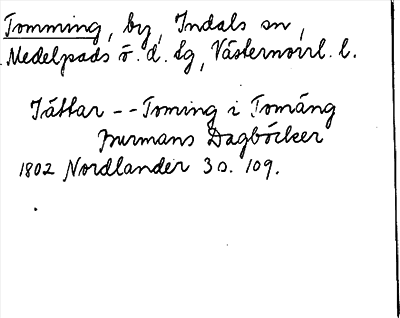 Tomming, by, Indals sn,
Medelpads ö. d. sg, Västernorrl. l.
Jättar -- Toming i Tomäng
Burmans Dagböcker
1802 Nordlander 3 s. 109.